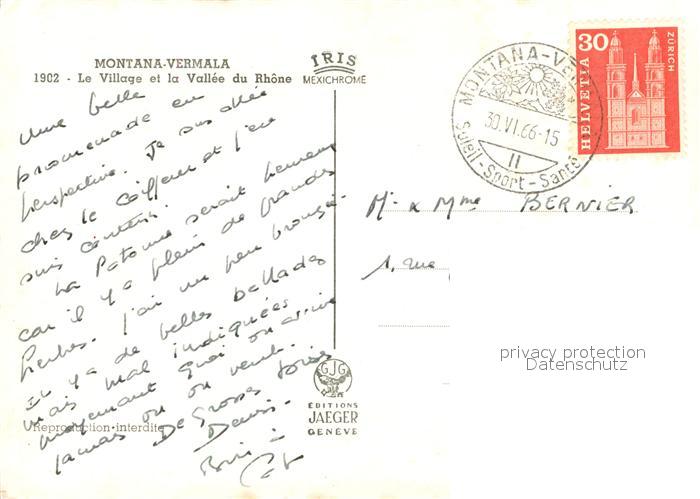 MONTANA-VERMALA
1902 - Le Village et la Vallée du Rhône
IRIS
MEXICHROME
Une belle
promenade en
perspective. Je suis allée
chez le coiffeur et j'en
suis contente.
La Patoune serait heureuse
car il y a plein de grandes
herbes. J'ai un peu bronzé.
Il y a de belles ballades
mais mal indiquées
moyennant quoi on arrive
jamais où on veut.
De Grosses bises
Denise
Reproduction interdite
GJG
ÉDITIONS
JAEGER
GENÈVE
MONTANA-VE
30.VI.66-15
II
Soleil-Sport-Santé
30
HELVETIA
ZÜRICH
Mr & Mme BERNIER
1, rue
privacy protection
Datenschutz